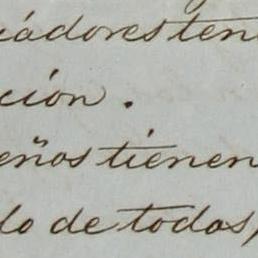 iádores ten
ción.
eños tienen
do de todas,